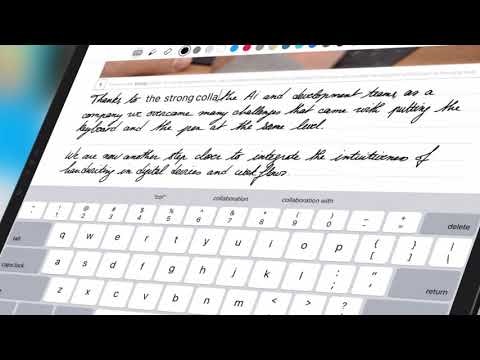 Thanks to the strong colla the AI and development teams, as a
company we overcame many challenges that came with putting the
keyboard and the pen at the same level.
We are now another step closer to integrate the intuitiveness of
handwriting in digital devices and workflows
"col" collaboration collaboration with
~ ! @ # $ % ^ & * ( ) _ + delete
` 1 2 3 4 5 6 7 8 9 0 - =
tab q w e r t y u i o p { } |
[ ] \
caps lock a s d f g h j k l : " return
; '
z x c v b n m < > ?